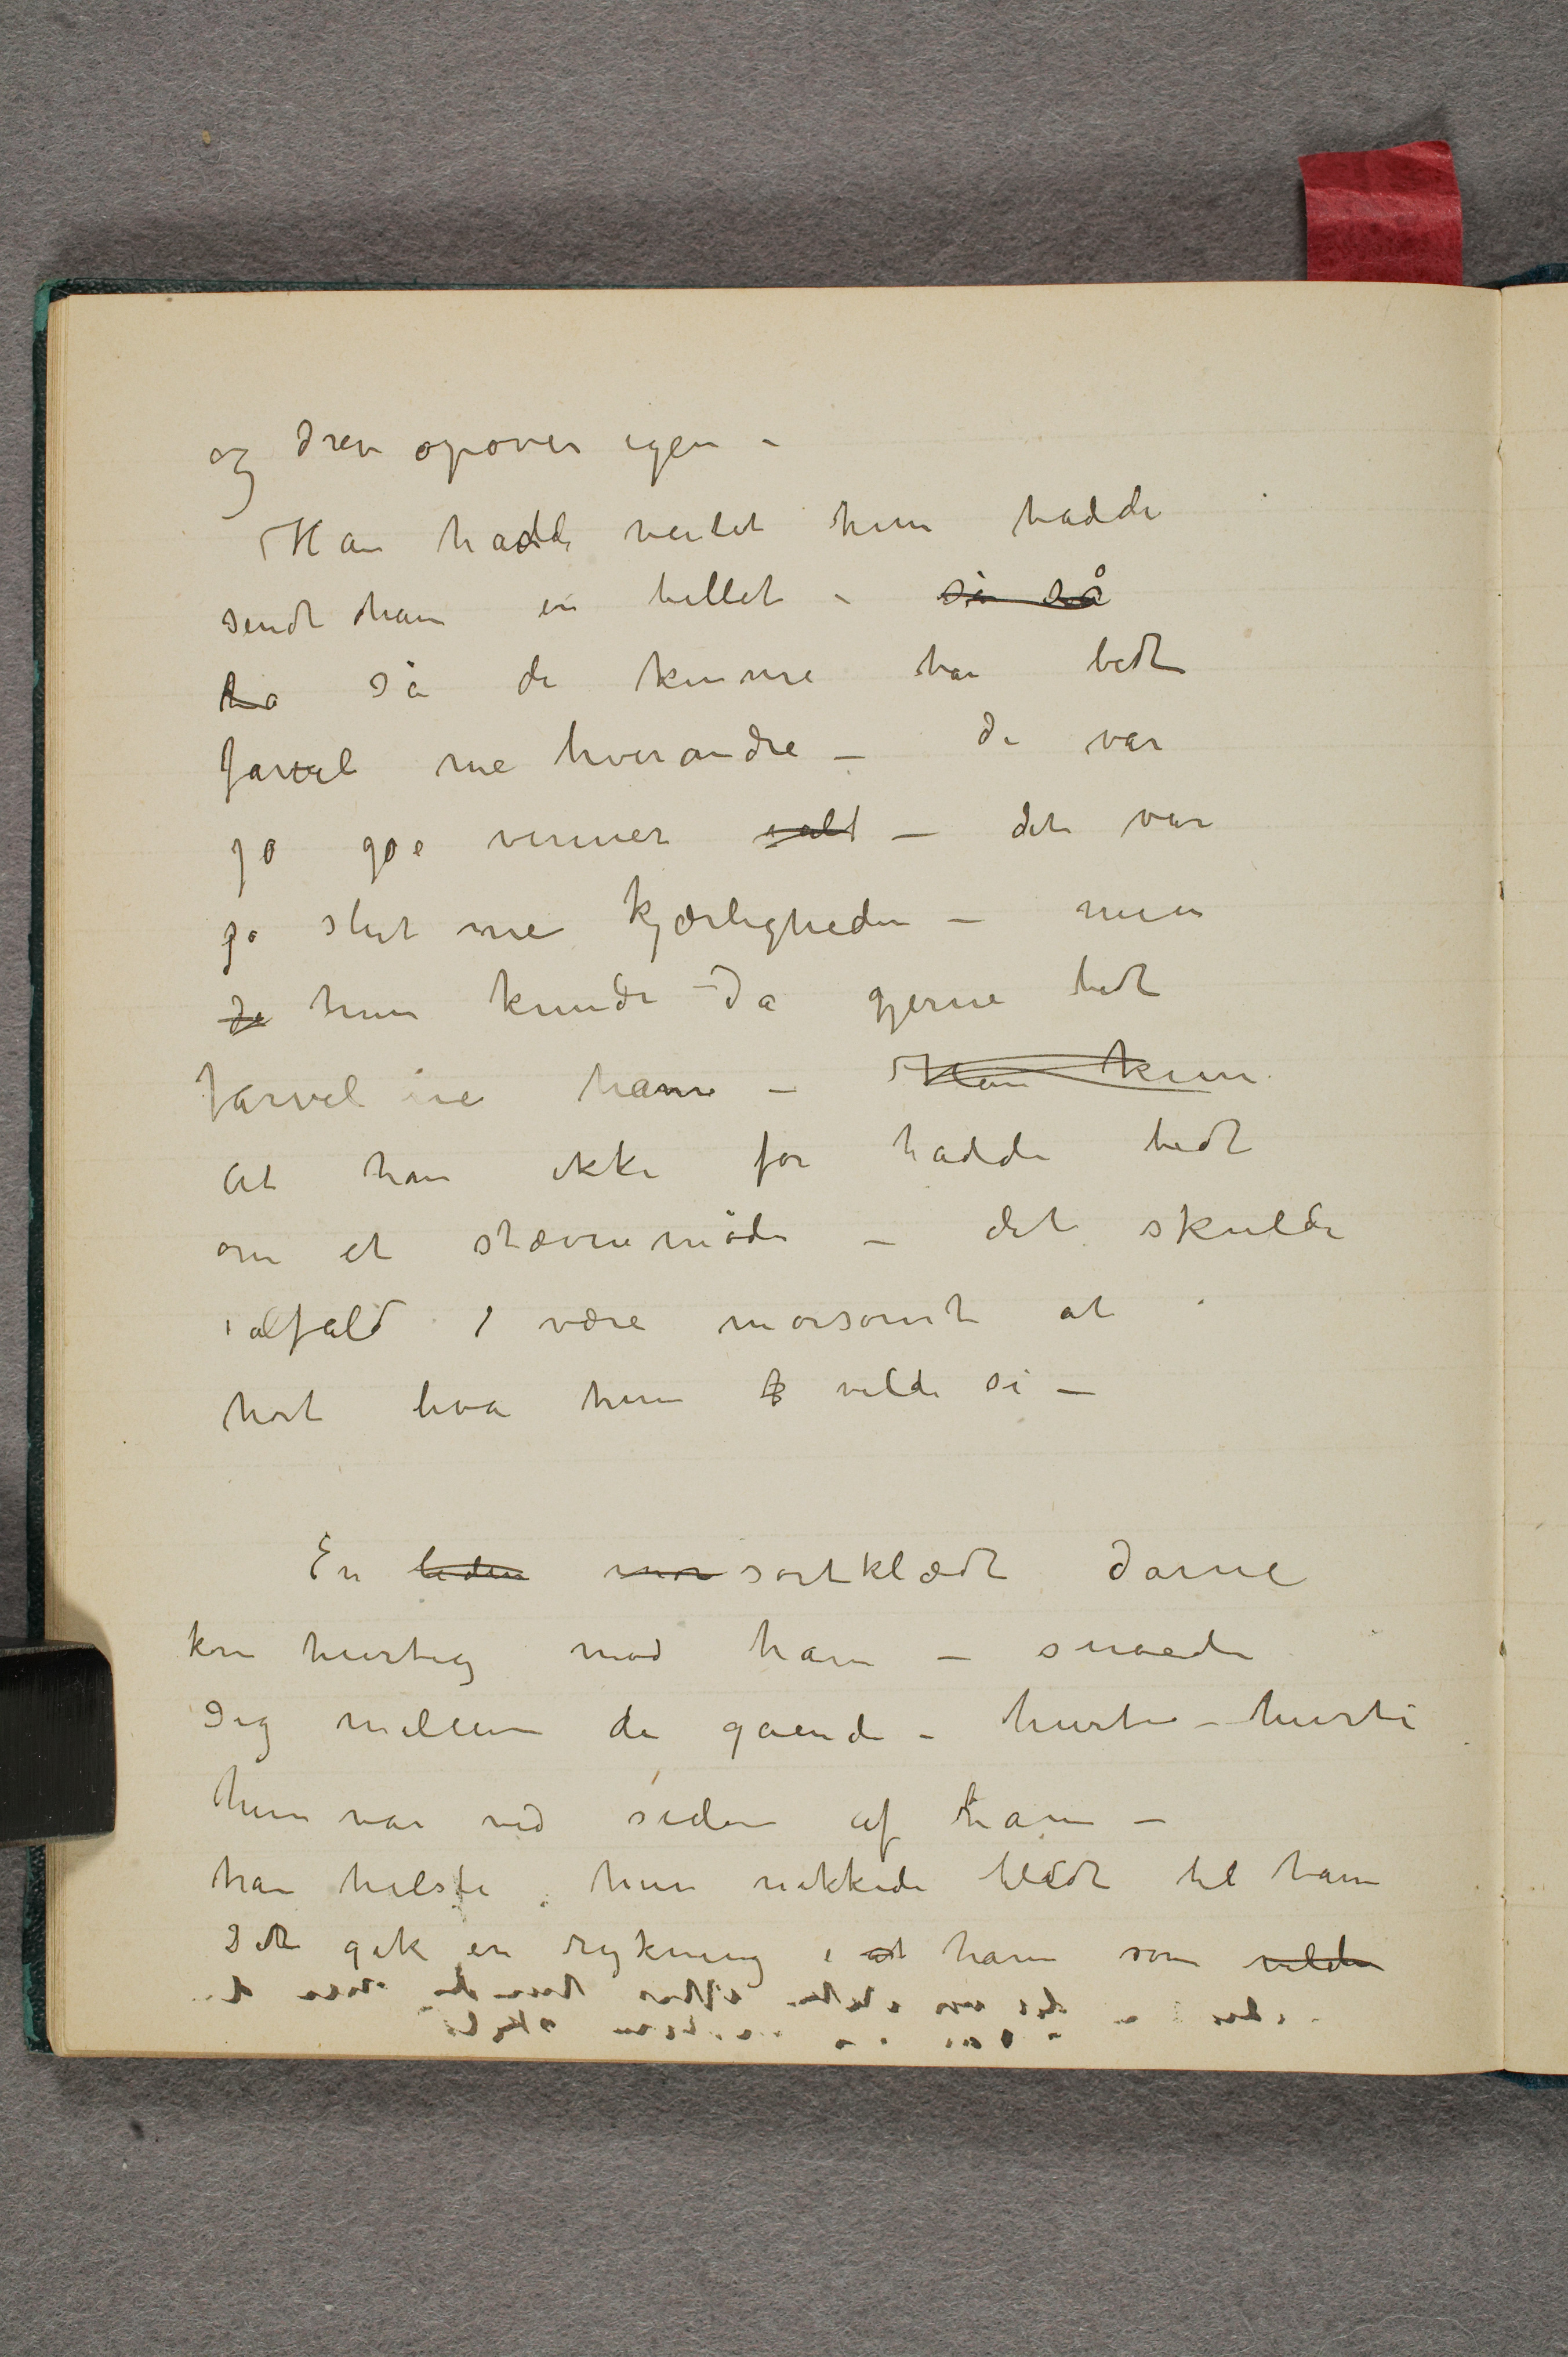 og drev opover igen –
Han hadde ventet hun hadde
sendt ham en billet – så så
ha så de kunne ha bedt
farvel me hverandre – de var
jo goe venner ialt – det var
jo slut me kjærligheden – men
Ja hun kunde da gjerne bedt
farvel me ham – Han kun
At han ikke før hadde bedt
om et stævnemøde – det skulde
ialfald være morsomt at
hørt hva hun vilde si –
En liden mør sortklædt dame
kom hurtig mod ham – snoede
sig mellem de gående – hurti – hurti
hun var ved siden af ham –
han hilste, hun nikkede blidt til ham
Det gik en rykning i at ham som vilde